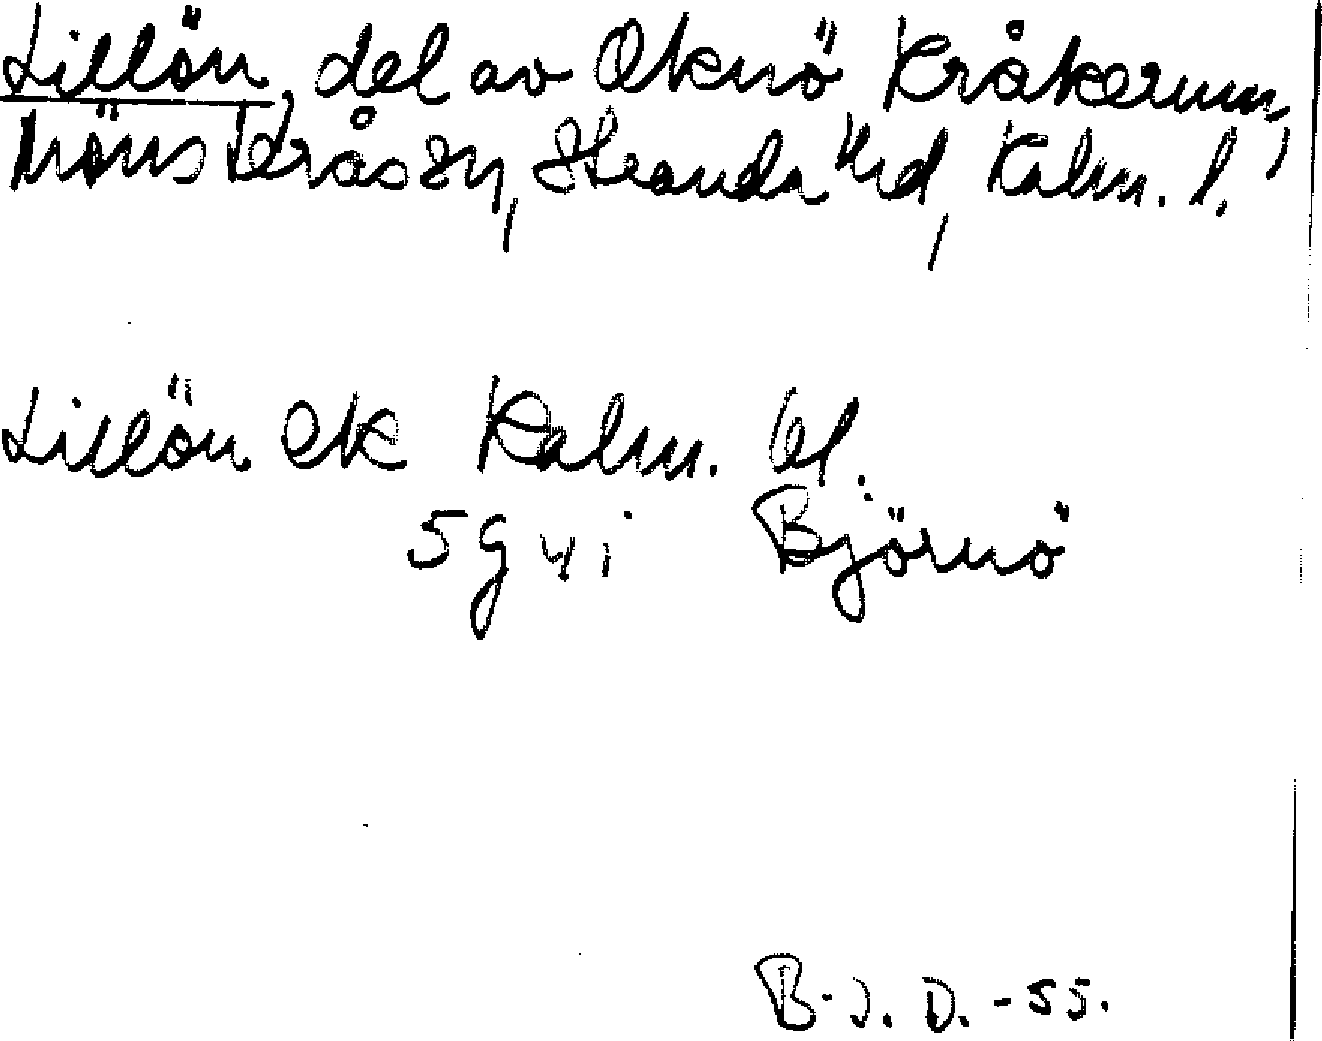 Lillön, del av Oknö, Kråkerum,
Mönsterås sn, Stranda hd, Kalm. l.
Lillön ek Kalm. bl.
5G 4i Björnö
B.J.D. -55.